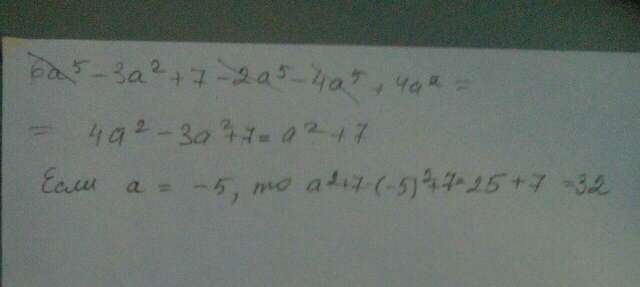 6a⁵ - 3a² + 7 - 2a⁵ - 4a⁵ + 4a² =
= 4a² - 3a² + 7 = a² + 7
Если a = -5, то a² + 7 (-5)² + 7 = 25 + 7 = 32